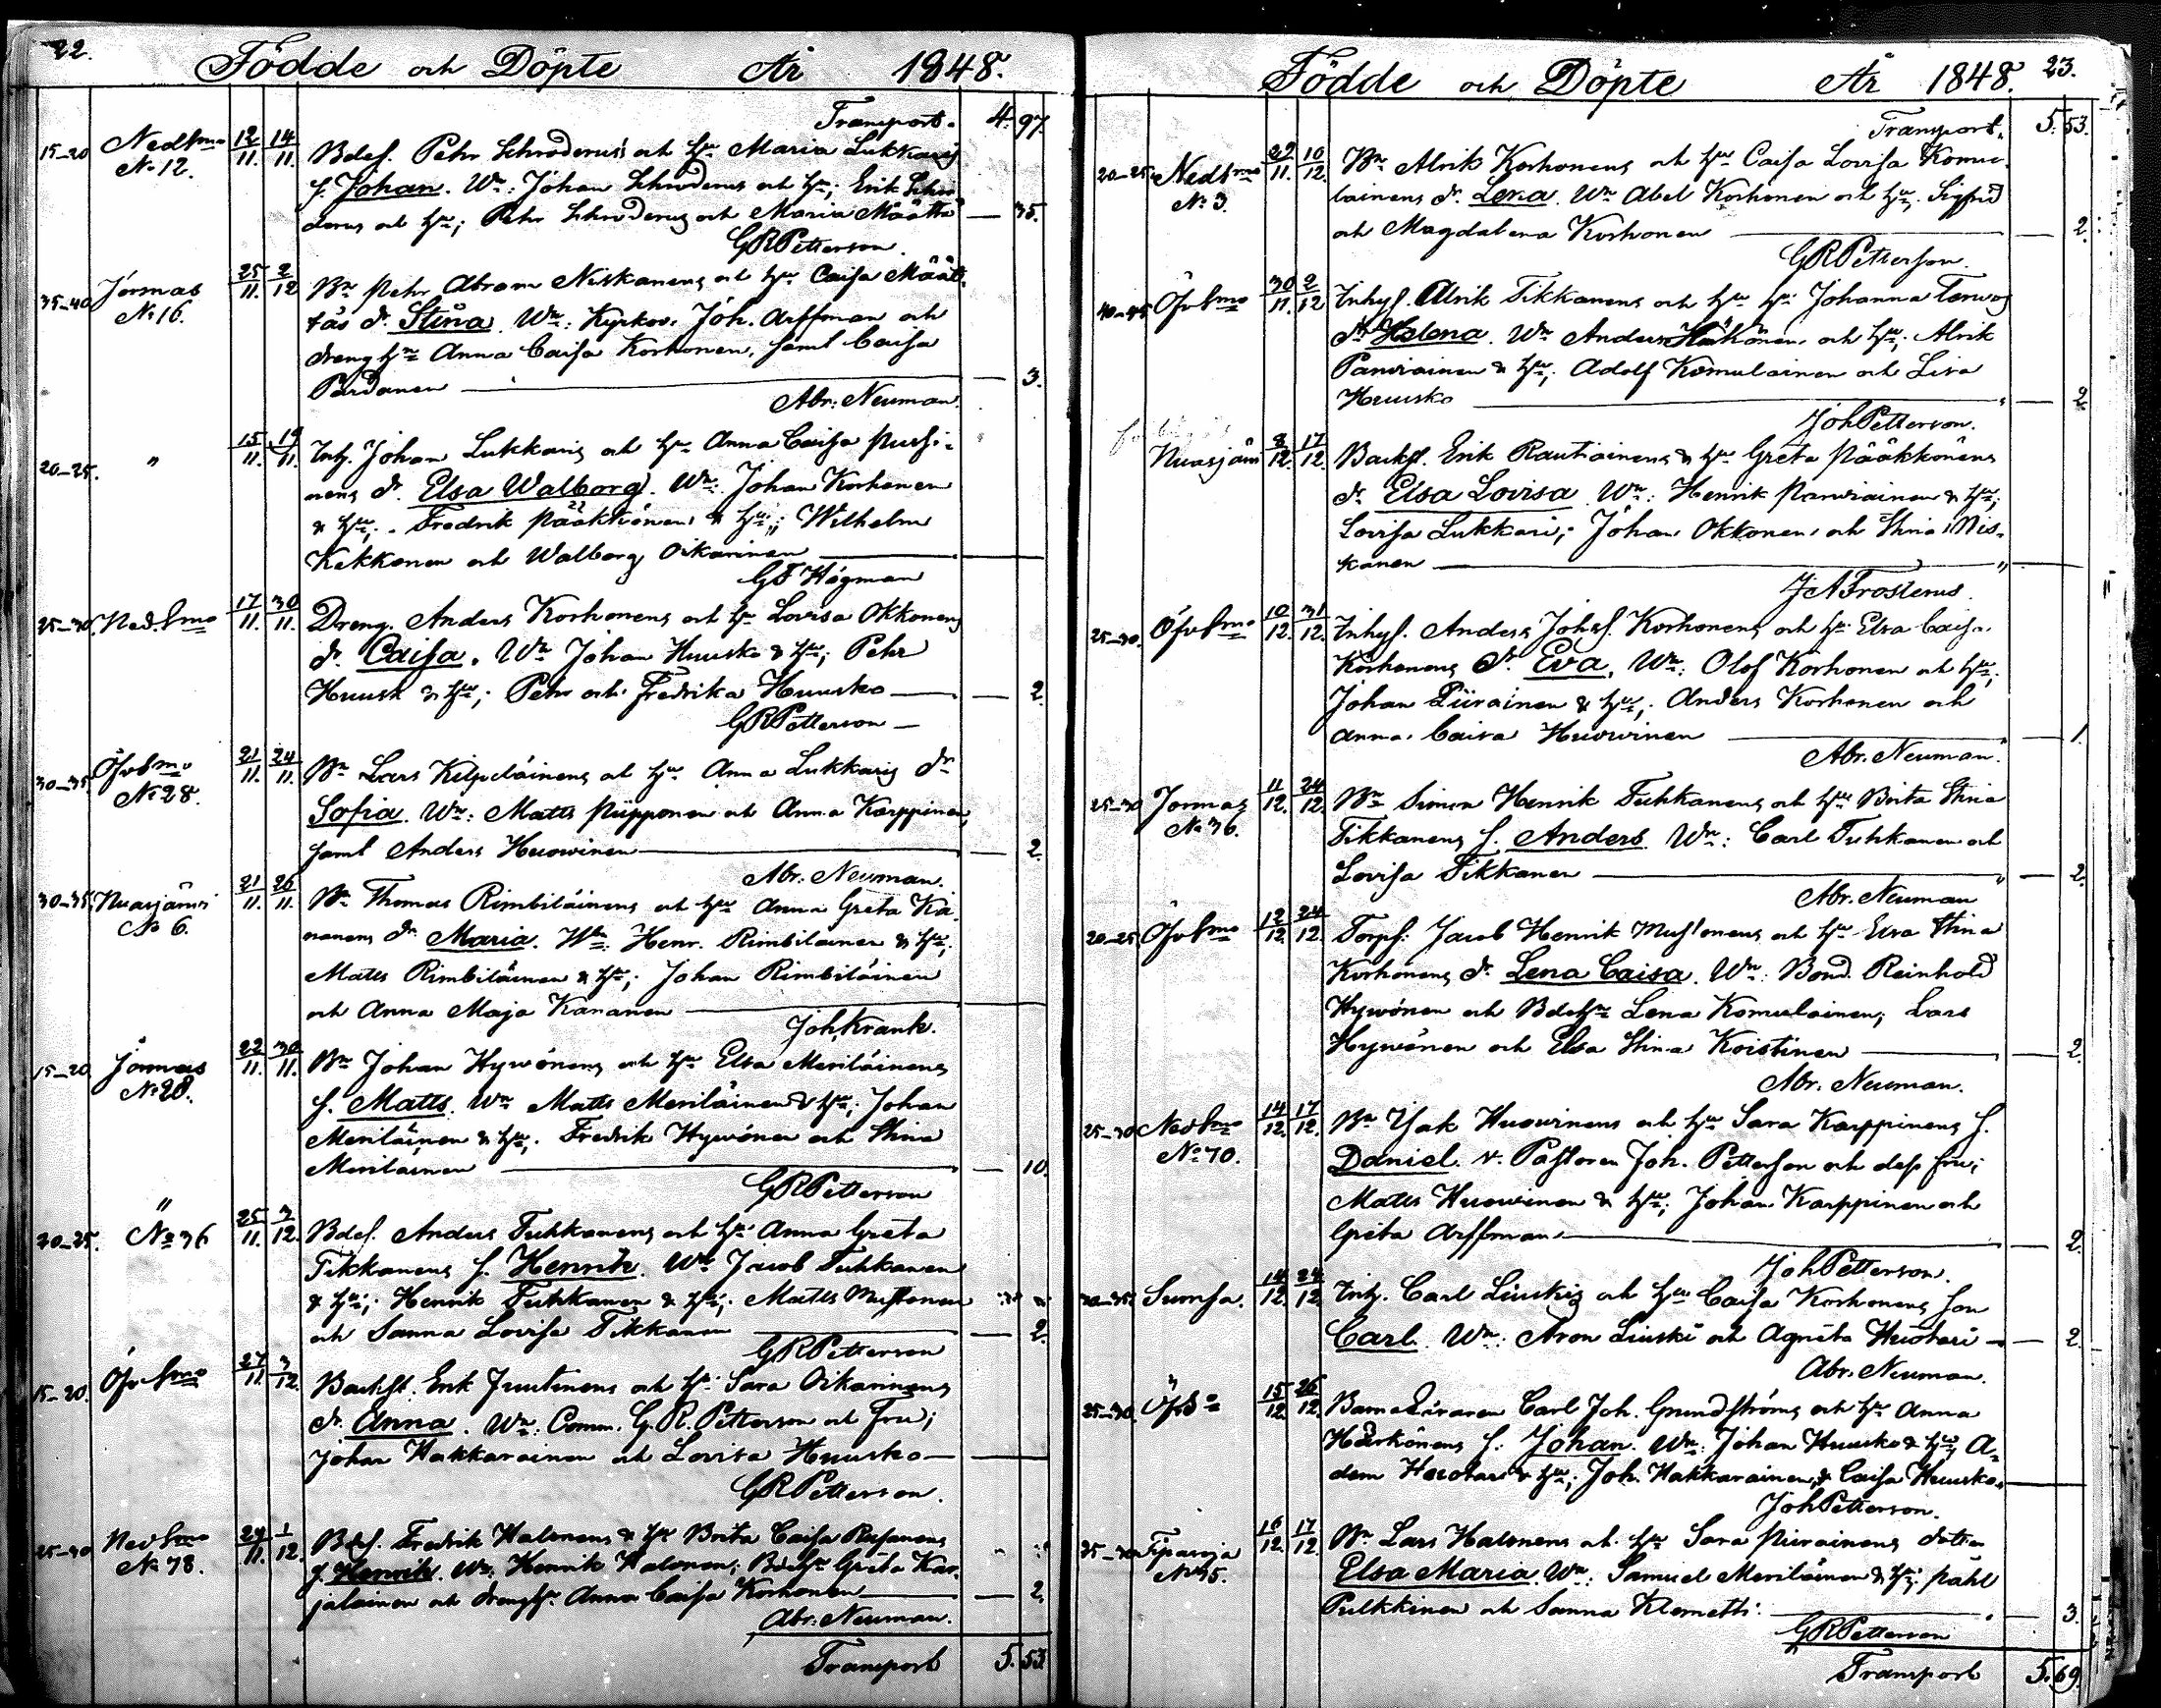 22.
Födde och Döpte År 1848.
Transport. 4. 97.
15-20 Nedbmo 12 14 Bdes. Pehr Schroderus's och hu Maria Lukkaris
No 12. 11. 11. s. Johan. Wn: Johan Schroderus och hu; Erik Schro
derus och hu; Pehr Schroderus och Maria Määttä — 35.
GRPetterson.
35-40 Jormas 25 2 Bn Pehr Abram Niskanens och hu Caisa Määt-
No 16. 11. 12 täs dr. Stina. Wn: Kyrkov. Joh. Arffman och
dreng hu Anna Caisa Korhonen, samt Caisa
Pardanen — 3.
Abr. Neuman.
20-25. " 15 19 Inh. Johan Lukkaris och hu Anna Caisa Pursi-
11. 11. nens dr. Elsa Walborg. Wn: Johan Korhonen
& hu; Fredrik Pääkkönen & hu; Wilhelm
Kekkonen och Walborg Oikarinen —
GF Högman
25-30. Ned.bmo 17 30 Dreng. Anders Korhonens och hu Lovisa Okkonens
11. 11. dr. Caisa. Wn Johan Huusko & hu; Pehr
Huusk & hu; Pehr och Fredrika Huusko — 2
GRPetterson —
30-35 Öfvbmo 21 24 Bn Lars Kilpeläinens och hu Anna Lukkaris dr
No 28. 11. 11. Sofia. Wn: Matts Piipponen och Anna Karppinen,
samt Anders Huowinen — 2.
Abr. Neuman.
30-35 Nuasjärvi 21 26 Bn Thomas Rimbiläinens och hu Anna Greta Ka-
No 6. 11. 11. nanens dr. Maria. Wn: Henr. Rimbiläinen & hu;
Matts Rimbiläinen & hu; Johan Rimbiläinen
och Anna Maja Kananen —
Joh. Krank.
15-20 Jormas 22 30 Bn Johan Hywönens och hu Elsa Meriläinens
No 28. 11. 11. s. Matts. Wn Matts Meriläinen & hu; Johan
Meriläinen & hu; Fredrik Hywönen och Stina
Meriläinen — 10.
GRPetterson
20-25. " No 36 25 3 Bdes. Anders Tuhkanens och hu Anna Greta
11. 12. Tikkanens s. Henrik. Wn Jacob Tuhkanen
& hu; Henrik Tuhkanen & hu; Matts Mustonen
och Sanna Lovisa Tikkanen — 2.
GRPetterson
15-20. Öfvbmo 27 3 Backst. Erik Juntunens och hu Sara Oikarinens
11. 12. dr. Anna. Wn: Comm. G. R. Petterson och Fru;
Johan Hakkarainen och Lovisa Huusko —
GRPetterson.
25-30 Nedbmo 29 1 Bdes. Fredrik Halonens & hu Brita Caisa
No 78. 11. 12. s. Henrik. Wn: Henrik Halonen; Bdehu Greta Kar-
jalainen och drenghu Anna Caisa Korhonen — 2.
Abr. Neuman.
Transport 5. 53.
Födde och Döpte År 1848. 23.
Transport. 5. 53.
20-25. Nedbmo 29 10 Bn Alrik Korhonens och hu Caisa Lovisa Komu-
No 3. 11. 12. lainens dr. Lena. Wn Abel Korhonen och hu; Sigfrid
och Magdalena Korhonen — 2.
GRPetterson.
40-45 Öfvbmo 30 2 Inhys. Alrik Tikkanens och hu Johanna Terwos
11. 12 dr Helena. Wn Anders Härkönen och hu; Alrik
Parviainen & hu; Adolf Komulainen och Lisa
Huusko — 2.
JohPetterson.
Nuasjärvi 8 17 Backst. Erik Rautiainens & hu Greta Pääkkönens
12. 12 dr. Elsa Lovisa. Wn: Henrik Parviainen & hu;
Lovisa Lukkari; Johan Okkonen och Stina Nis-
kanen — "
J A Frosterus.
25-30. Öfvbmo 10 31 Inhys. Anders Johss. Korhonens och hu Elsa Caisa
12. 12. Korhonens dr Eva. Wn: Olof Korhonen och hu;
Johan Piirainen & hu; Anders Korhonen och
Anna Caisa Huowinen — 1.
Abr. Neuman.
25-30 Jormas 11 24 Bn Simon Henrik Tuhkanens och hu Brita Stina
No 36. 12. 12. Tikkanens s. Anders. Wn: Carl Tuhkanen och
Lovisa Tikkanen — 2.
Abr. Neuman
20-25 Öfvbmo 12 24 Torps. Jacob Henrik Mustonens och hu Eva Stina
12. 12. Korhonens dr. Lena Caisa. Wn: Bond. Reinhold
Hywönen och Bdehu Lena Komulainen; Lars
Hywönen och Elsa Stina Koistinen — 2.
Abr. Neuman.
25-30 Nedbmo 14 17 Bn Isak Huowinens och hu Sara Karppinens s.
No 70. 12. 12. Daniel. v. Pastoren Joh. Petterson och dess fru;
Matts Huowinen & hu; Johan Karppinen och
Greta Arffman — 2.
JohPetterson.
30-35. Sumsa. 14 24 Inh. Carl Liuskis och hu Caisa Korhonens son
12. 12. Carl. Wn: Aron Liuski och Agneta Huotari — 2.
Abr. Neuman.
25-30 15 26 Barnaläraren Carl Joh. Grundströms och hu Anna
12. 12. Härkönens s. Johan. Wn: Johan Huusko & hu; A-
dam Huotari & hu; Joh. Hakkarainen & Caisa Huusko.
JohPetterson.
25-30 Tipasoja 16 17 Bn Lars Halonens och hu Sara Piirainens dotter
No 35. 12. 12. Elsa Maria. Wn: Samuel Meriläinen & hu; Påhl
Pulkkinen och Sanna Klemetti. — 3.
GRPetterson
Transport 5. 69.